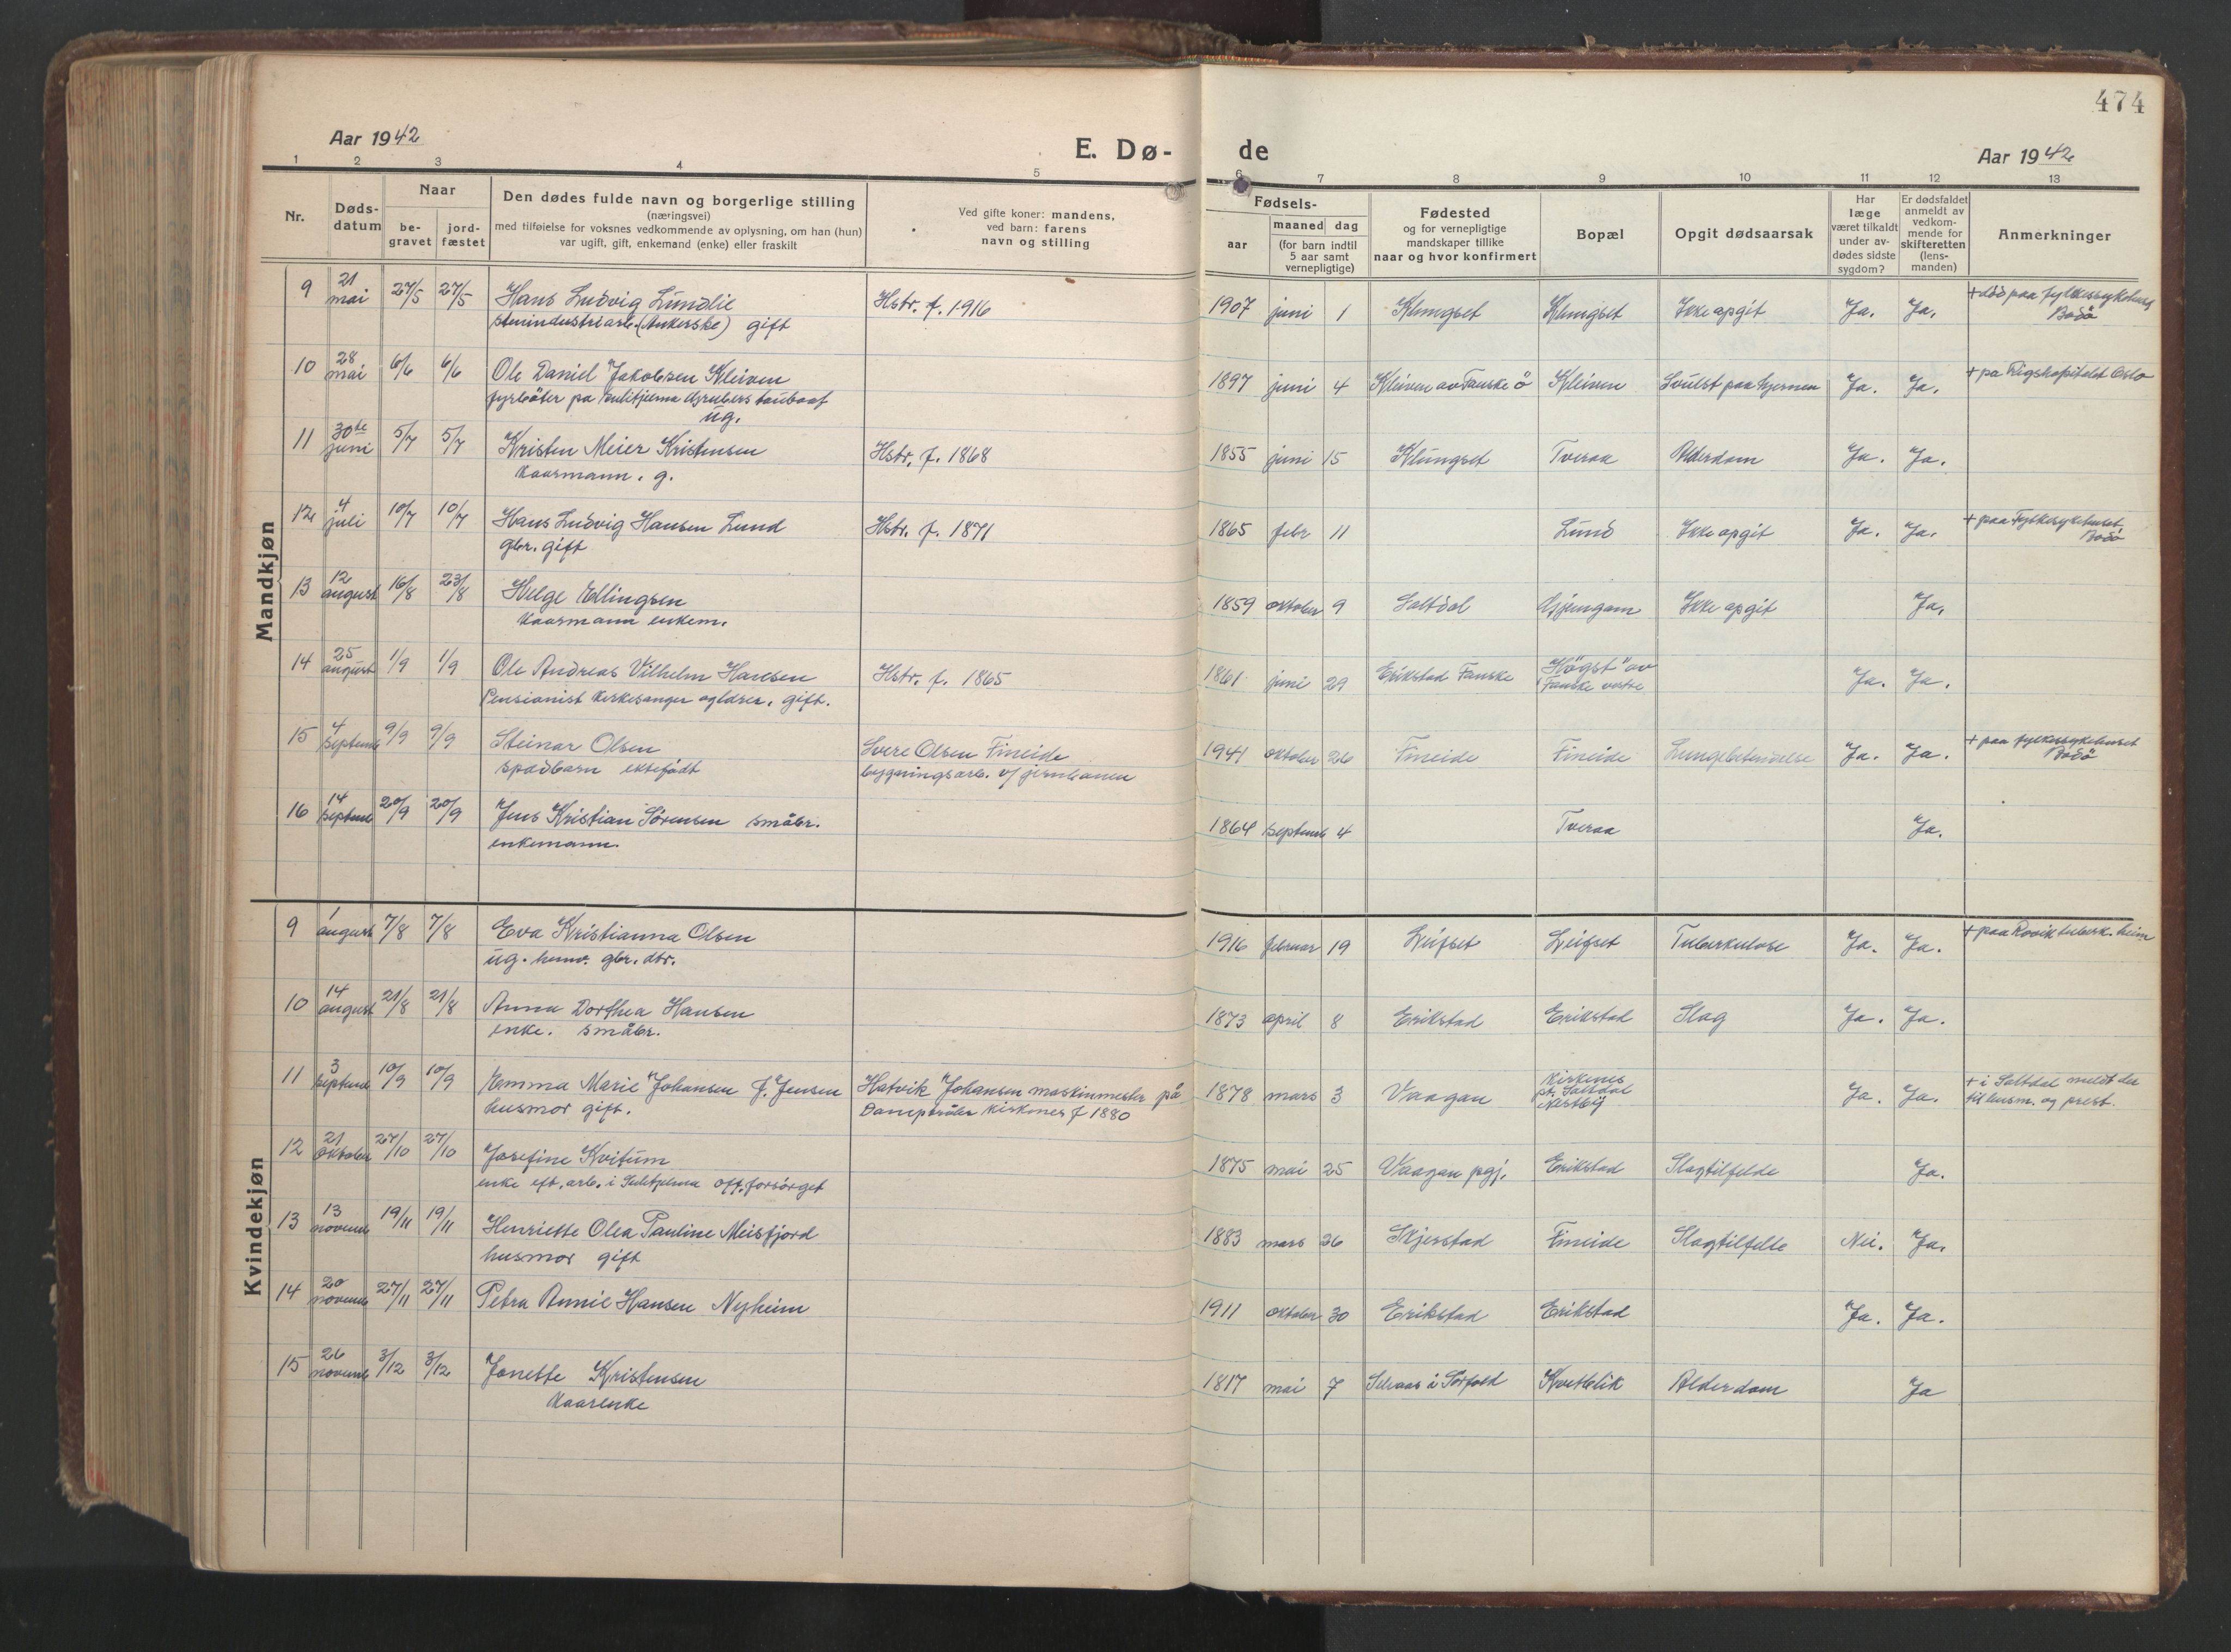 474
Aar 1942
E. Dø-
de
Aar 1942
1 2 3 4 5 6 7 8 9 10 11 12 13
Nr.
Døds-
datum
Naar
be-
gravet
jord-
fæstet
Den dødes fulde navn og borgerlige stilling
(næringsvei)
med tilføielse for voksnes vedkommende av oplysning, om han (hun)
var ugift, gift, enkemand (enke) eller fraskilt
Ved gifte koner: mandens,
ved barn: farens
navn og stilling
Fødsels-
aar
maaned dag
(for barn indtil
5 aar samt
vernepligtige)
Fødested
og for vernepligtige
mandskaper tillike
naar og hvor konfirmert
Bopæl
Opgit dødsaarsak
Har
læge
været tilkaldt
under av-
dødes sidste
sygdom?
Er dødsfaldet
anmeldt av
vedkom-
mende for
skifteretten
(lens-
manden)
Anmerkninger
Mandkjøn
9 21 mai 27/5 27/5 Hans Ludvig Lundlie Hstr. f. 1916 1907 juni 1 Klungset Klungset Ikke opgit Ja. Ja. + død paa fylkessykehuset
stenindustriarb. (Ankerske) gift Bodö
10 28 mai 6/6 6/6 Ole Daniel Jakobsen Kleiven 1897 juni 4 Kleiven av Fauske ö Kleiven Svulst paa hjernen Ja. Ja. + pa Rigshospitalet Oslo
fyrböter pa Sulitjelma Grubers taubaat
ug.
11 30te juni 5/7 5/7 Kristen Meier Kristensen Hstr. f. 1868 1855 juni 15 Klungset Tveraa Alderdom Ja. Ja.
Kaarmann. g.
12 4 juli 10/7 10/7 Hans Ludvig Hansen Lund Hstr. f. 1871 1865 febr 11 Lund Ikke opgit Ja. Ja. + paa Fylkesykehuset
gbr. gift Bodö
13 12 august 16/8 23/8 Helge Ellingsen 1859 oktober 9 Saltdal Gjemgam Ikke opgit Ja.
Kaarmann enkem.
14 25 august 1/9 1/9 Ole Andreas Vilhelm Hansen Hstr. f. 1865 1861 juni 29 Erikstad Fauske "Högst" av Ja. Ja.
Pensionist kirkesanger og lærer. gift. Fauske vestre
15 4 septemb 9/9 9/9 Steinar Olsen Svere Olsen Fineide 1941 oktober 26 Fineide Fineide Lungebetendelse Ja. Ja. + paa fylkessykehuset
spædbarn ektefödt bygningsarb. v/ jernbanen Bodö
16 14 septemb 20/9 20/9 Jens Kristian Sörensen småbr. 1864 septemb 4 Tveraa Ja.
enkemann.
Kvindekjøn
9 1 august 7/8 7/8 Eva Kristianna Olsen 1916 februar 19 Leifset Leifset Tuberkulose Ja. Ja. + paa Rovik tuberk. heim
ug. hemv. gbr. dtr.
10 14 august 21/8 21/8 Anna Dorthea Hansen 1873 april 8 Erikstad Erikstad Slag Ja. Ja.
enke. småbr.
11 3 septemb 10/9 10/9 Emma Marie Johansen f. Jensen Hatvik Johansen maskinmester på 1878 mars 3 Vaagan Kirkenes Ja. Ja. + i Saltdal meldt der
husmor gift. Kirkenes f 1880 pt. Saltdal til lensm. og prest.
Nestby
12 21 oktober 27/10 27/10 Josefine Kvitum 1875 mai 25 Vaagan pgj. Erikstad Slagtilfelde Ja.
enke eft. arb. i Sulitjelma off. forsörget
13 13 novemb 19/11 19/11 Henriette Olea Pauline Meisfjord 1883 mars 26 Skjerstad Fineide Slagtilfelle Nei. Ja.
husmor gift
14 20 novemb 27/11 27/11 Petra Annie Hansen Nyheim 1911 oktober 30 Erikstad Erikstad Ja. Ja.
15 26 novemb 3/12 3/12 Jonette Kristensen 1817 mai 7 i Sörfold Kvetblik Alderdom Ja
Kaarenke